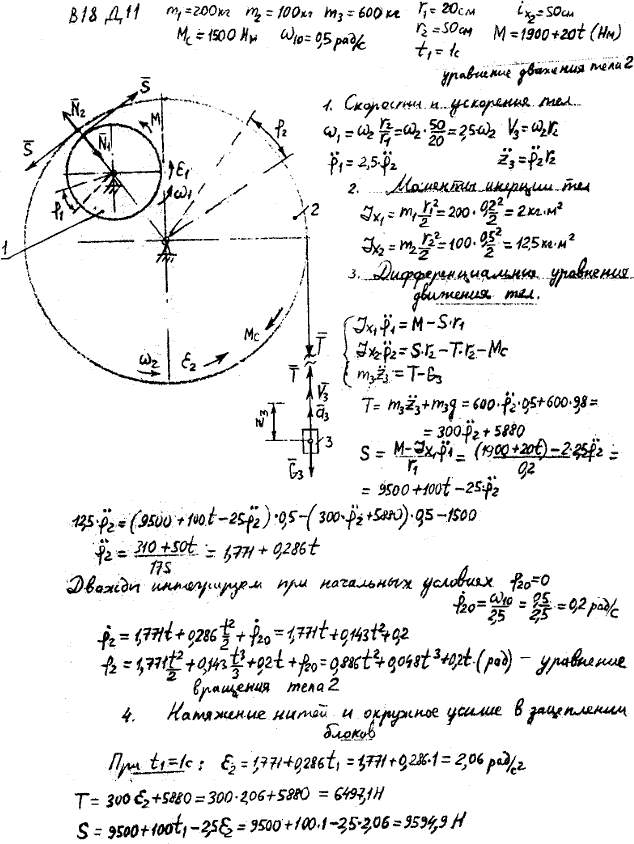 В18 Д11 m₁=200кг m₂=100кг m₃=600кг r₁=20см iₓ₂=50см
M_C=1500 Нм ω₁₀=0,5 рад/с r₂=50см M=1900+20t (Нм)
t₁=1с
уравнение движения тела 2
S̄
N̄₂
S̄
N̄₁
M
φ₂
ε₁
ω₁
φ₁
1
2
M_C
ω₂ ε₂
T̄
T̄
V̄₃
ā₃
z₃
3
Ḡ₃
1. Скорости и ускорения тел
ω₁=ω₂ r₂/r₁=ω₂·50/20=2,5ω₂ V₃=ω₂r₂
φ̈₁=2,5·φ̈₂ z̈₃=φ̈₂r₂
2. Моменты инерции тел
Jx₁=m₁r₁²/2=200·0,2²/2=2кг·м²
Jx₂=m₂r₂²/2=100·0,5²/2=12,5кг·м²
3. Дифференциальные уравнения
движения тел.
Jx₁φ̈₁=M-S·r₁
Jx₂φ̈₂=S·r₂-T·r₂-M_C
m₃z̈₃=T-G₃
T=m₃z̈₃+m₃g=600·φ̈₂·0,5+600·9,8=
=300φ̈₂+5880
S=(M-Jx₁φ̈₁)/r₁=((1900+20t)-2·2,5φ̈₂)/0,2=
=9500+100t-25·φ̈₂
12,5·φ̈₂=(9500+100t-25φ̈₂)·0,5-(300·φ̈₂+5880)·0,5-1500
φ̈₂=(310+50t)/175=1,771+0,286t
Дважды интегрируем при начальных условиях φ₂₀=0
φ̇₂₀=ω₁₀/2,5=0,5/2,5=0,2 рад/с
φ̇₂=1,771t+0,286t²/2+φ̇₂₀=1,771t+0,143t²+0,2
φ₂=1,771t²/2+0,143t³/3+0,2t+φ₂₀=0,886t²+0,048t³+0,2t·(рад) - уравнение
вращения тела 2
4. Натяжение нитей и окружное усилие в зацеплении
блоков
При t₁=1с: ε₂=1,771+0,286t₁=1,771+0,286·1=2,06 рад/с²
T=300ε₂+5880=300·2,06+5880=6497,1Н
S=9500+100t₁-2,5ε₂=9500+100·1-2,5·2,06=9594,9 Н